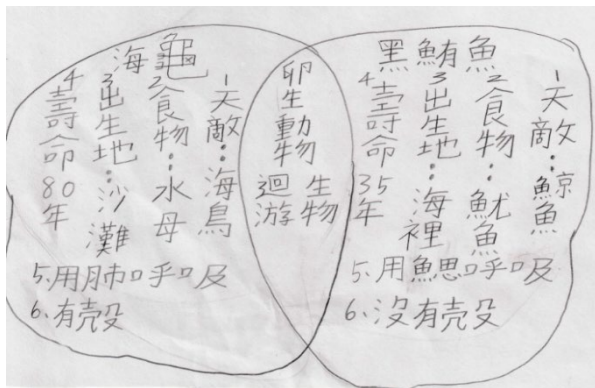 海龜
1天敵:海鳥
2食物:水母
3出生地:沙灘
4壽命80年
5.用肺呼吸
6.有殼
卵生動物
迴游生物
黑鮪魚
1天敵:鯨魚
2食物:魷魚
3出生地:海裡
4壽命35年
5.用鰓呼吸
6.沒有殼